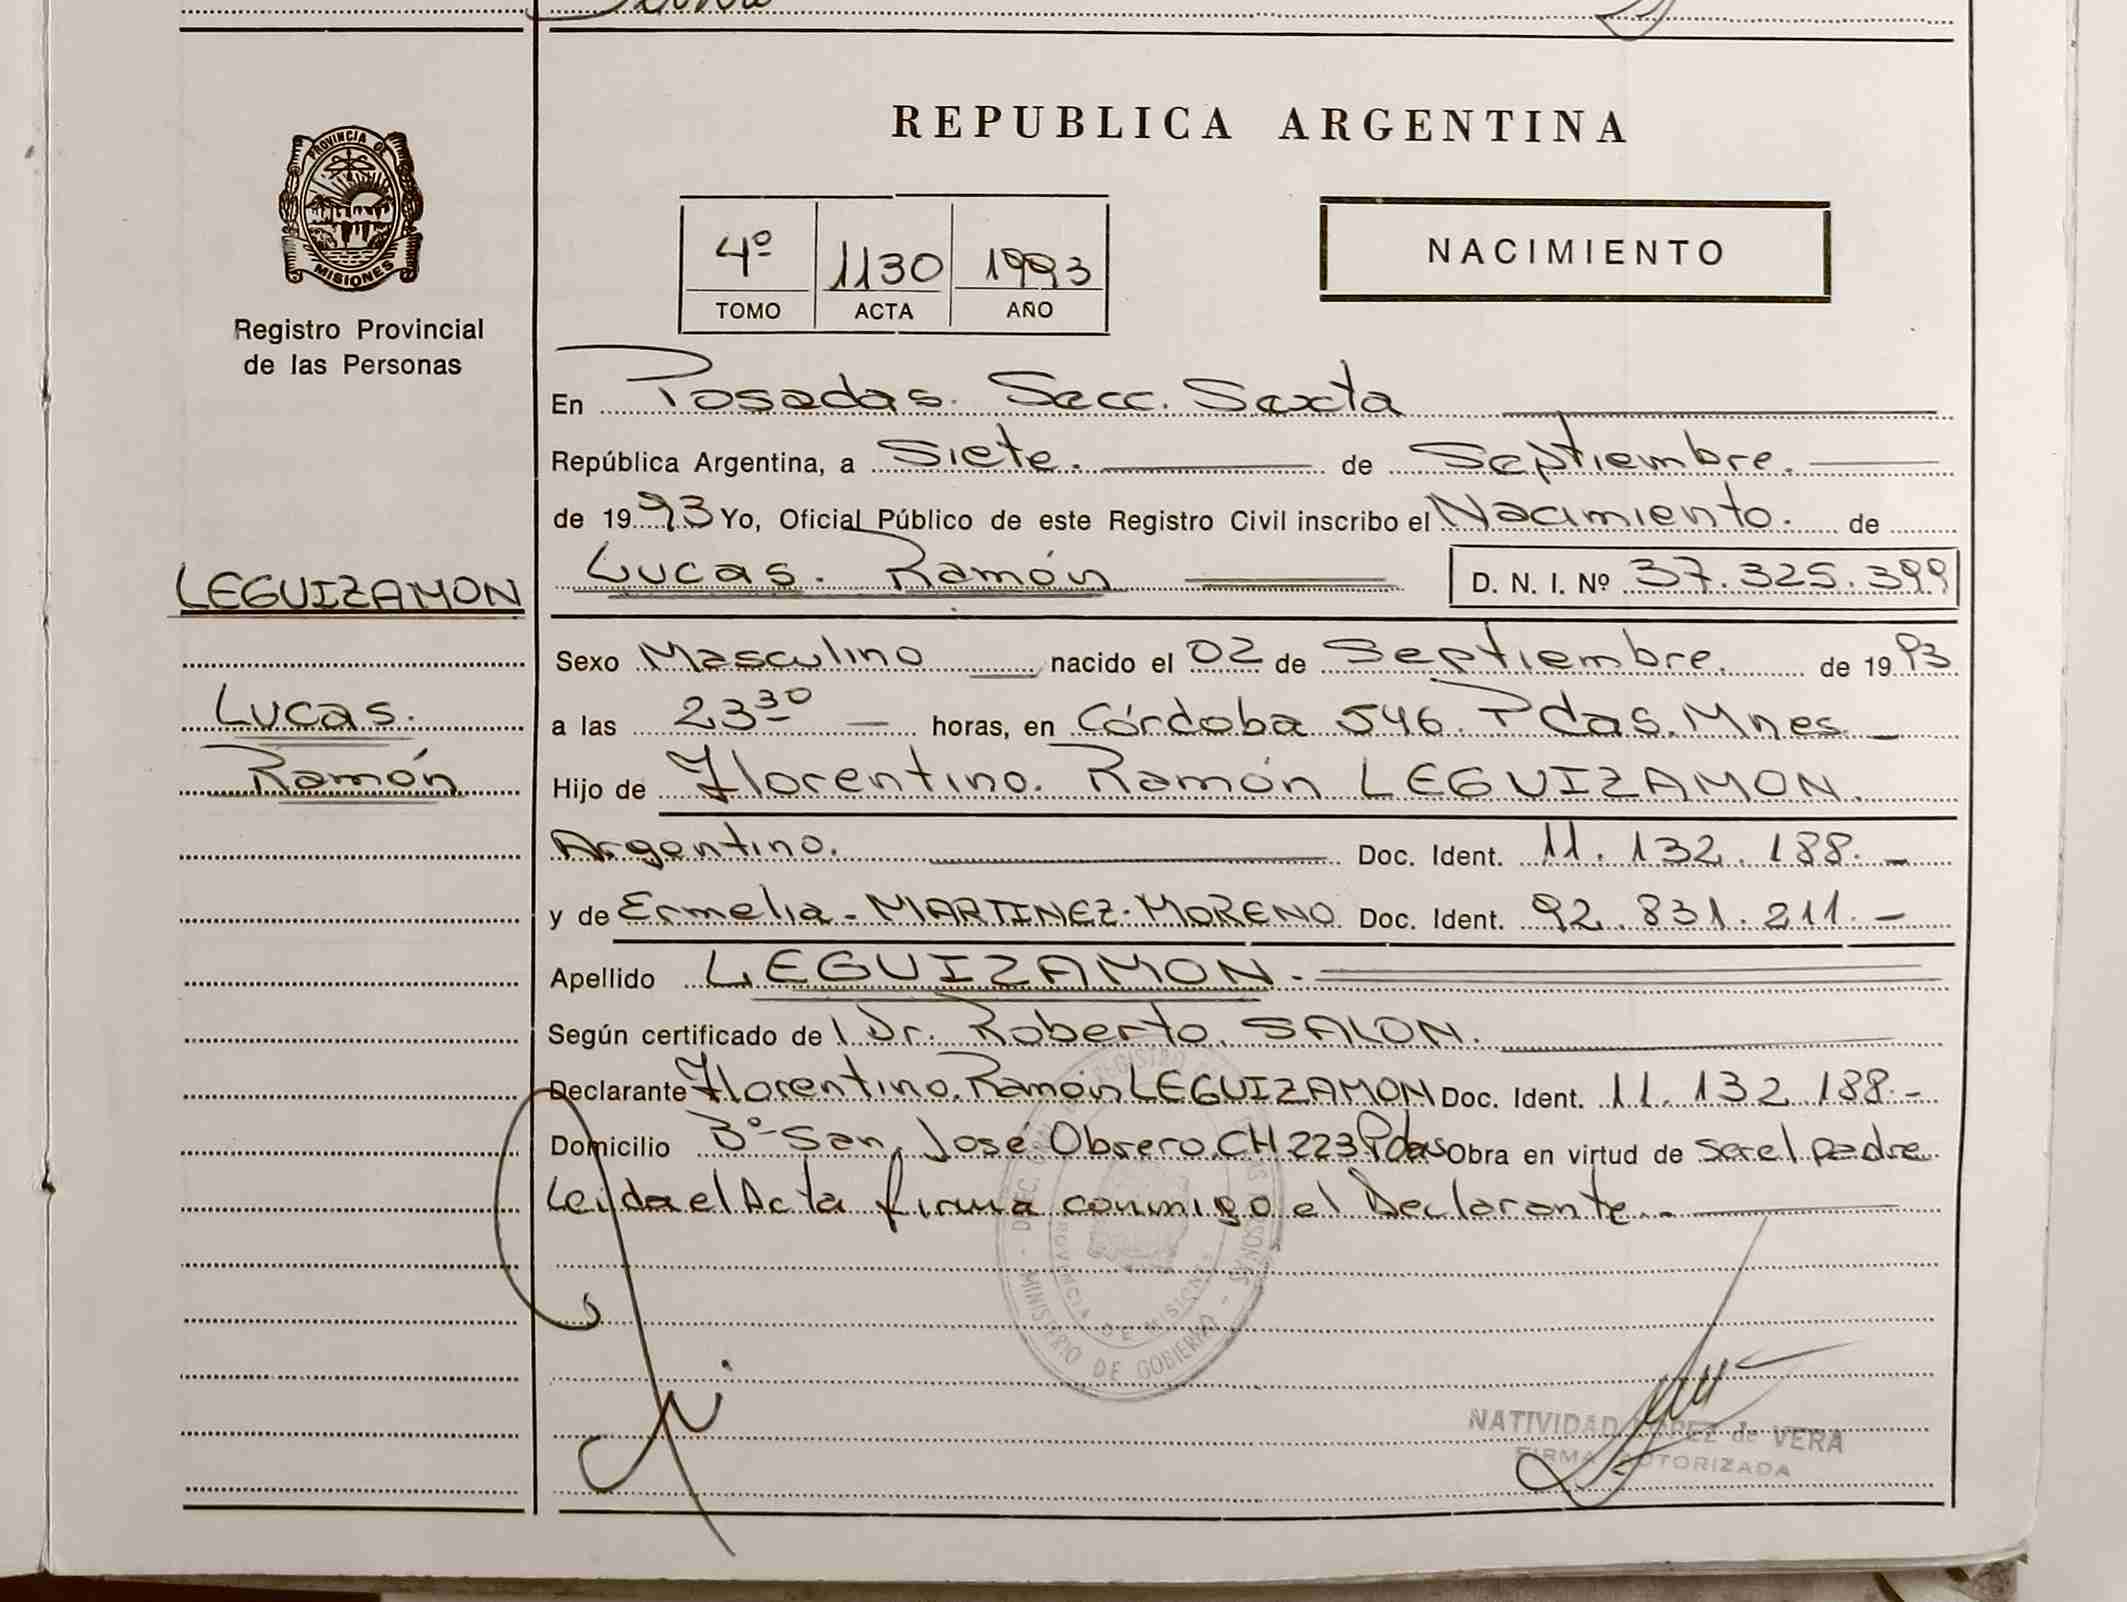 REPUBLICA ARGENTINA
PROVINCIA DE
MISIONES
Registro Provincial
de las Personas
4º 1130 1993
TOMO ACTA AÑO
NACIMIENTO
En Posadas. Secc. Sexta
República Argentina, a Siete. de Septiembre.
de 1993 Yo, Oficial Público de este Registro Civil inscribo el Nacimiento. de
LEGUIZAMON
Lucas. Ramón
Lucas. Ramón D. N. I. Nº 37.325.399
Sexo Masculino nacido el 02 de Septiembre. de 1993
a las 23 30 horas, en Córdoba 546. Pdas. Mnes
Hijo de Florentino. Ramón LEGUIZAMON.
Argentino. Doc. Ident. 11.132.188.-
y de Ermelia - MARTINEZ - MORENO Doc. Ident. 92.831.211.-
Apellido LEGUIZAMON.-
Según certificado de l Dr. Roberto. SALON.
Declarante Florentino. Ramón LEGUIZAMON Doc. Ident. 11.132.188.-
Domicilio Bº San José Obrero CH 223 Pdas Obra en virtud de ser el padre
Leida el Acta firma conmigo el Declarante.
MINISTERIO DE GOBIERNO
PROVINCIA DE MISIONES
NATIVIDAD LOPEZ de VERA
FIRMA AUTORIZADA